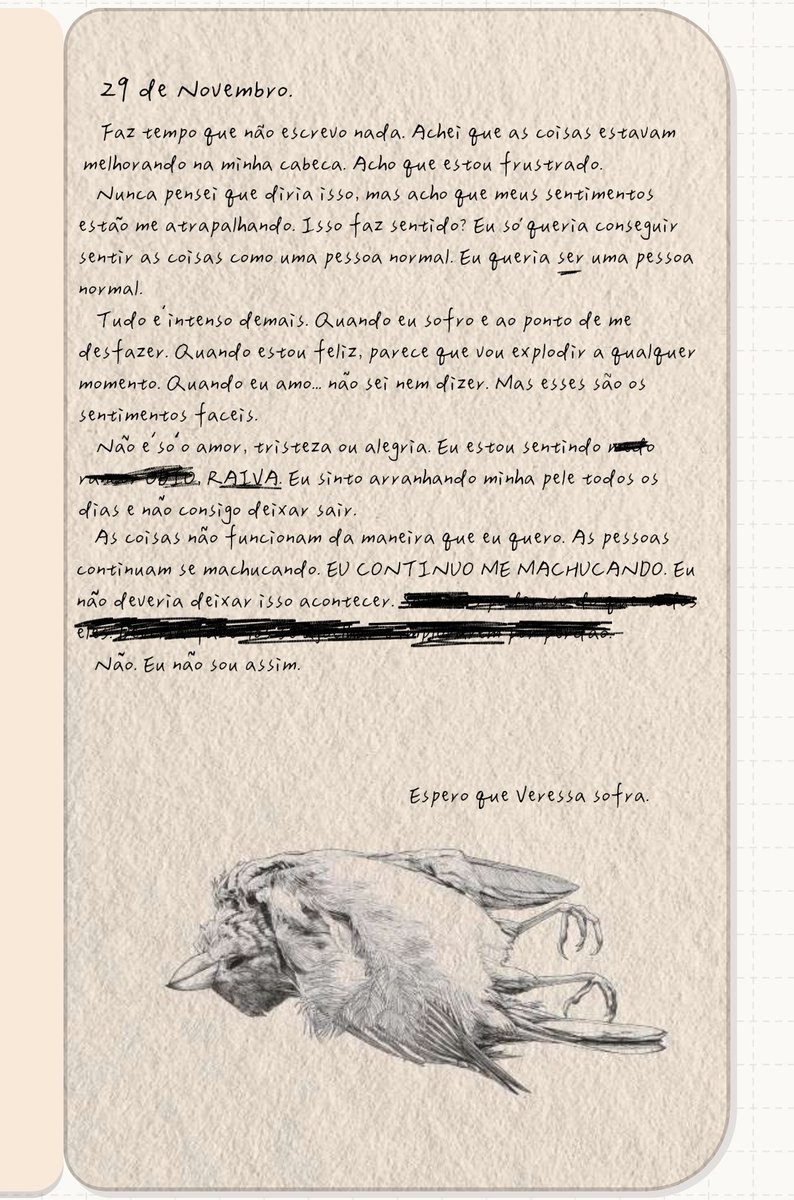 29 de Novembro.
Faz tempo que não escrevo nada. Achei que as coisas estavam
melhorando na minha cabeca. Acho que estou frustrado.
Nunca pensei que diria isso, mas acho que meus sentimentos
estão me atrapalhando. Isso faz sentido? Eu só queria conseguir
sentir as coisas como uma pessoa normal. Eu queria ser uma pessoa
normal.
Tudo é intenso demais. Quando eu sofro e ao ponto de me
desfazer. Quando estou feliz, parece que vou explodir a qualquer
momento. Quando eu amo... não sei nem dizer. Mas esses são os
sentimentos faceis.
Não é só o amor, tristeza ou alegria. Eu estou sentindo
ODIO, RAIVA. Eu sinto arranhando minha pele todos os
dias e não consigo deixar sair.
As coisas não funcionam da maneira que eu quero. As pessoas
continuam se machucando. EU CONTINUO ME MACHUCANDO. Eu
não deveria deixar isso acontecer.
por perdão.
Não. Eu não sou assim.
Espero que Veressa sofra.